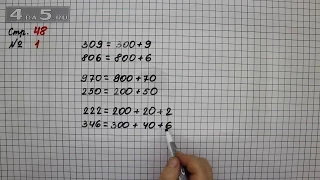 4НА5.RU
Стр. 48
№ 1
309 = 300 + 9
806 = 800 + 6
970 = 900 + 70
250 = 200 + 50
222 = 200 + 20 + 2
346 = 300 + 40 + 6